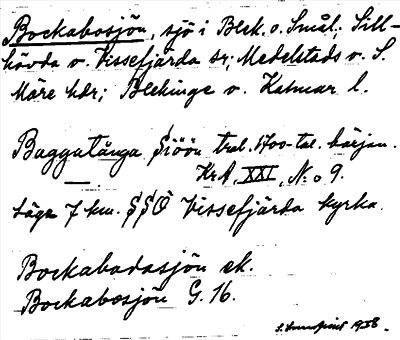 Bockabosjön, sjö i Blek. o. Smål.; Sill-
hövda o. Vissefjärda sr; Medelstads o. S.
Möre hdr; Blekinge o. Kalmar l.
Baggatånga Siöön tral. 1700-tal. början.
KrA, XXI, No 9.
Läge 7 km. SSÖ Vissefjärda kyrka.
Bockabodasjön ek.
Bockabosjön G. 16.
1938.